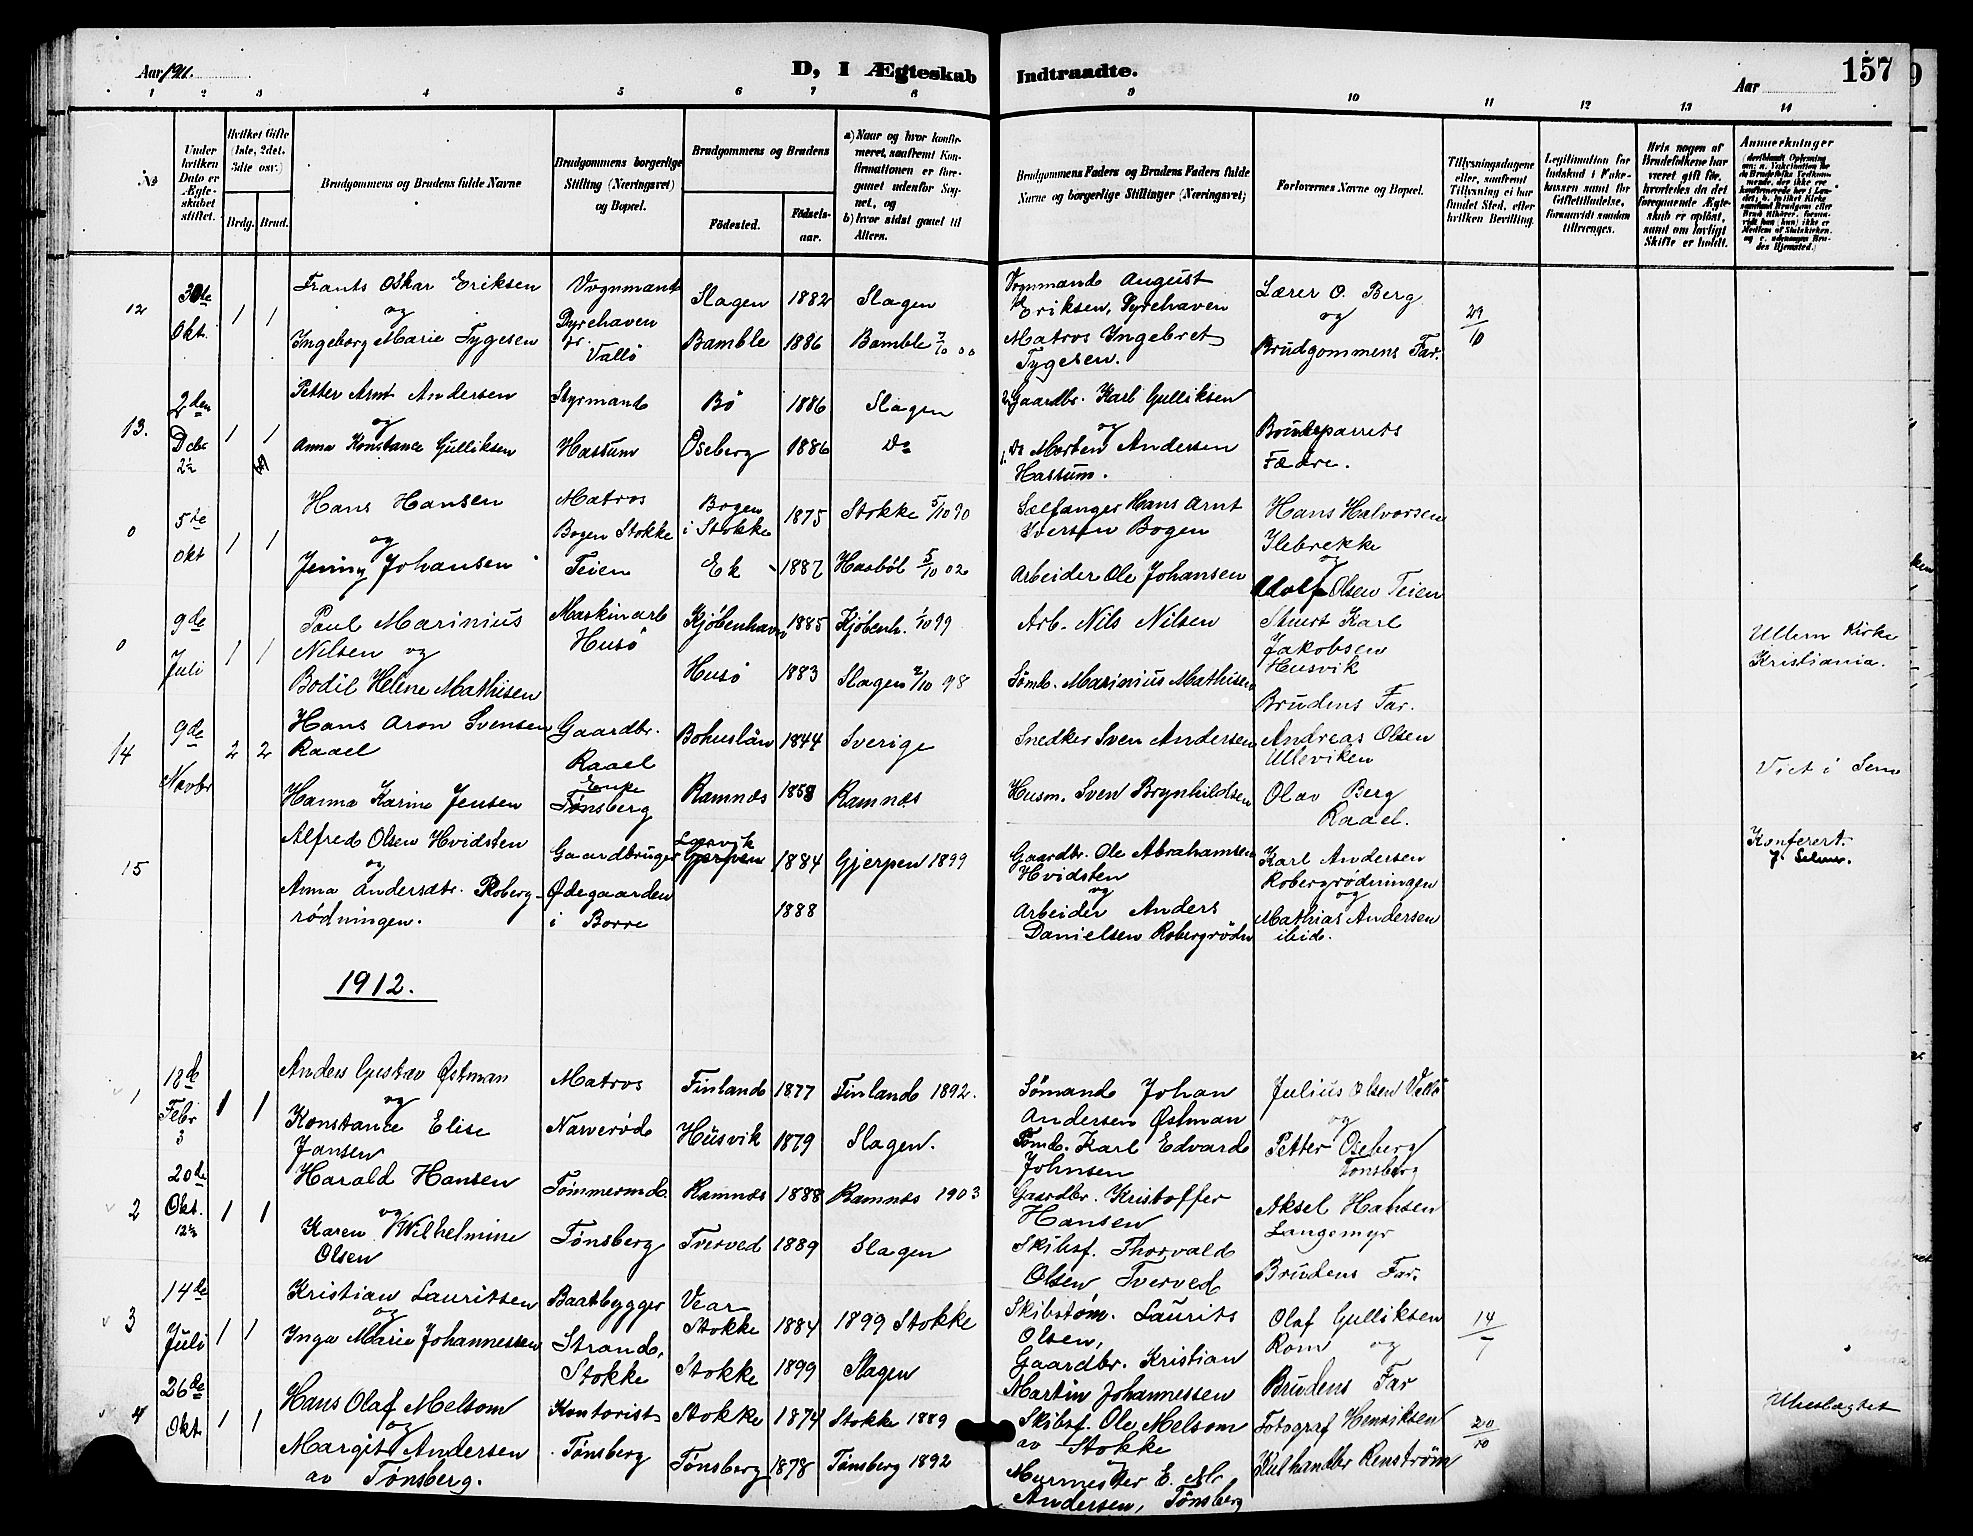 Aar 1911.
D, I Ægteskab Indtraadte.
Aar
157
1 2 3 4 5 6 7 8 9 10 11 12 13 14
No
Under hvilken Dato er Ægteskabet stiftet.
Hvilket Gifte (1ste, 2det, 3die osv.)
Brdg. Brud.
Brudgommens og Brudens fulde Navne
Brudgommens borgerlige Stilling (Næringsvei) og Bopæl.
Brudgommens og Brudens
Fødested.
Fødselsaar.
a) Naar og hvor konfirmeret, saafremt Konfirmationen er foregaaet udenfor Sognet, og
b) hvor sidst gaaet til Alters.
Brudgommens Faders og Brudens Faders fulde Navne og borgerlige Stillinger (Næringsvei)
Forlovernes Navne og Bopæl.
Tillysningsdagene eller, saafremt Tillysning ei har fundet Sted, efter hvilken Bevilling.
Legitimation for Indskud i Enkekassen samt for Giftetilladelse, forsaavidt saadan tiltrænges.
Hvis nogen af Brudefolkene har været gift før, hvorledes da det foregaaende Ægteskab er opløst, samt om lovligt Skifte er holdt.
Anmerkninger
12 30te Okt. 1 1
Frants Oskar Eriksen
og
Ingeborg Marie Tygesen
Vognmand
Dyrehaven
pr. Vallö
Slagen 1882 Slagen
Bamble 1886 Bamble 7/10 00
Vognmand August
Eriksen, Dyrehaven
Matros Ingebret
Tygesen.
Lærer O. Berg
og
Brudgommens Far.
29/10
13. 2den Dcbr 2½ 1 1
Petter Arnt Andersen
og
Anna Konstance Gulliksen
Styrmand
Hassum
Bö 1886 Slagen
Oseberg 1886 do
2. Gaardbr. Karl Gulliksen
og
1. do Morten Andersen
Hassum.
Brudeparrets
Fædre.
0 5te Okt 1 1
Hans Hansen
og
Jenny Johansen
Matros
Bogen Stokke
Teien
Bogen
i Stokke 1875 Stokke 5/10 90
Ek 1887 Haabøl 5/10 02
Selfanger Hans Arnt
Iversen Bogen
Arbeider Ole Johansen
Hans Halvorsen
Ilebrekke
og
Adolf Olsen Teien
0 9de Juli 1 1
Paul Marinius
Nilsen og
Bodil Helene Mathisen
Maskinarb
Husö
Kjöbenhavn 1885 Kjöbenh. 1/10 99
Husö 1883 Slagen 2/10 98
Arb. Nils Nilsen
Sömd. Marinius Mathisen
Stuert Karl
Jakobsen
Husvik
Brudens Far.
Ullern Kirke
Kristiania.
14 9de Novbr 2 2
Hans Aron Svensen
Raael
Hanna Karine Jensen
Gaardbr.
Raael
Enke
Tønsberg
Bohuslän 1844 Sverige
Ramnæs 1858 Ramnæs
Snedker Sven Andersen
Husm. Sven Brynhildsen
Andreas Olsen
Ulleviken
Olav Berg
Raael.
Viet i Sem
15
Alfred Olsen Hvidsten
og
Anna Andersdtr. Roberg-
rødningen.
Gaardbruger
Ødegaarden
i Borre
Larvik
Gjerpen 1884 Gjerpen 1899
1888
Gaardbr. Ole Abrahamsen
Hvidsten
og
Arbeider Anders
Danielsen Robergrødn
Karl Andersen
Robergrødningen
og
Mathias Andersen
ibid.
Konferert.
1912.
1 18de Febr 3 1 1
Anders Gustav Østman
og
Konstance Elise
Jansen
Matros
Narverød
Finland 1877 Finland 1892.
Husvik 1879 Slagen.
Sömand Johan
Andersen Østman
Sömd. Karl Edvard
Johnsen
Julius Olsen Vallö
og
Petter Oseberg
Tønsberg
2 20de Okt. 12½ 1 1
Harald Hansen
og
Karen Wilhelmine
Olsen
Tömmermd.
Tønsberg
Ramnæs 1888 Ramnæs 1903
Tverved 1889 Slagen
Gaardbr. Kristoffer
Hansen
Skibsf. Thorvald
Olsen Tverved
Aksel Hansen
Langemyr
Brudens Far.
3 14de Juli 1 1
Kristian Lauritsen
og
Inga Marie Johannessen
Baatbygger
Strand,
Stokke
Vear
Stokke 1884 1899 Stokke
Stokke 1899 Slagen
Skibstøm. Laurits
Olsen,
Gaardbr. Kristian
Martin Johannessen
Olaf Gulliksen
Rom og
Brudens Far
14/7
4 26de Okt 1 1
Hans Olaf Melsom
og
Margit Andersen
av Tønsberg.
Kontorist
Tønsberg
Stokke 1874 Stokke 1889
Tønsberg 1878 Tönsberg 1892
Skibsf. Ole Melsom
av Stokke
og
Murmester E. M.
Andersen, Tönsberg
Fotograf Henriksen
Kulhandler Renström
20/10
Ubeslægtet